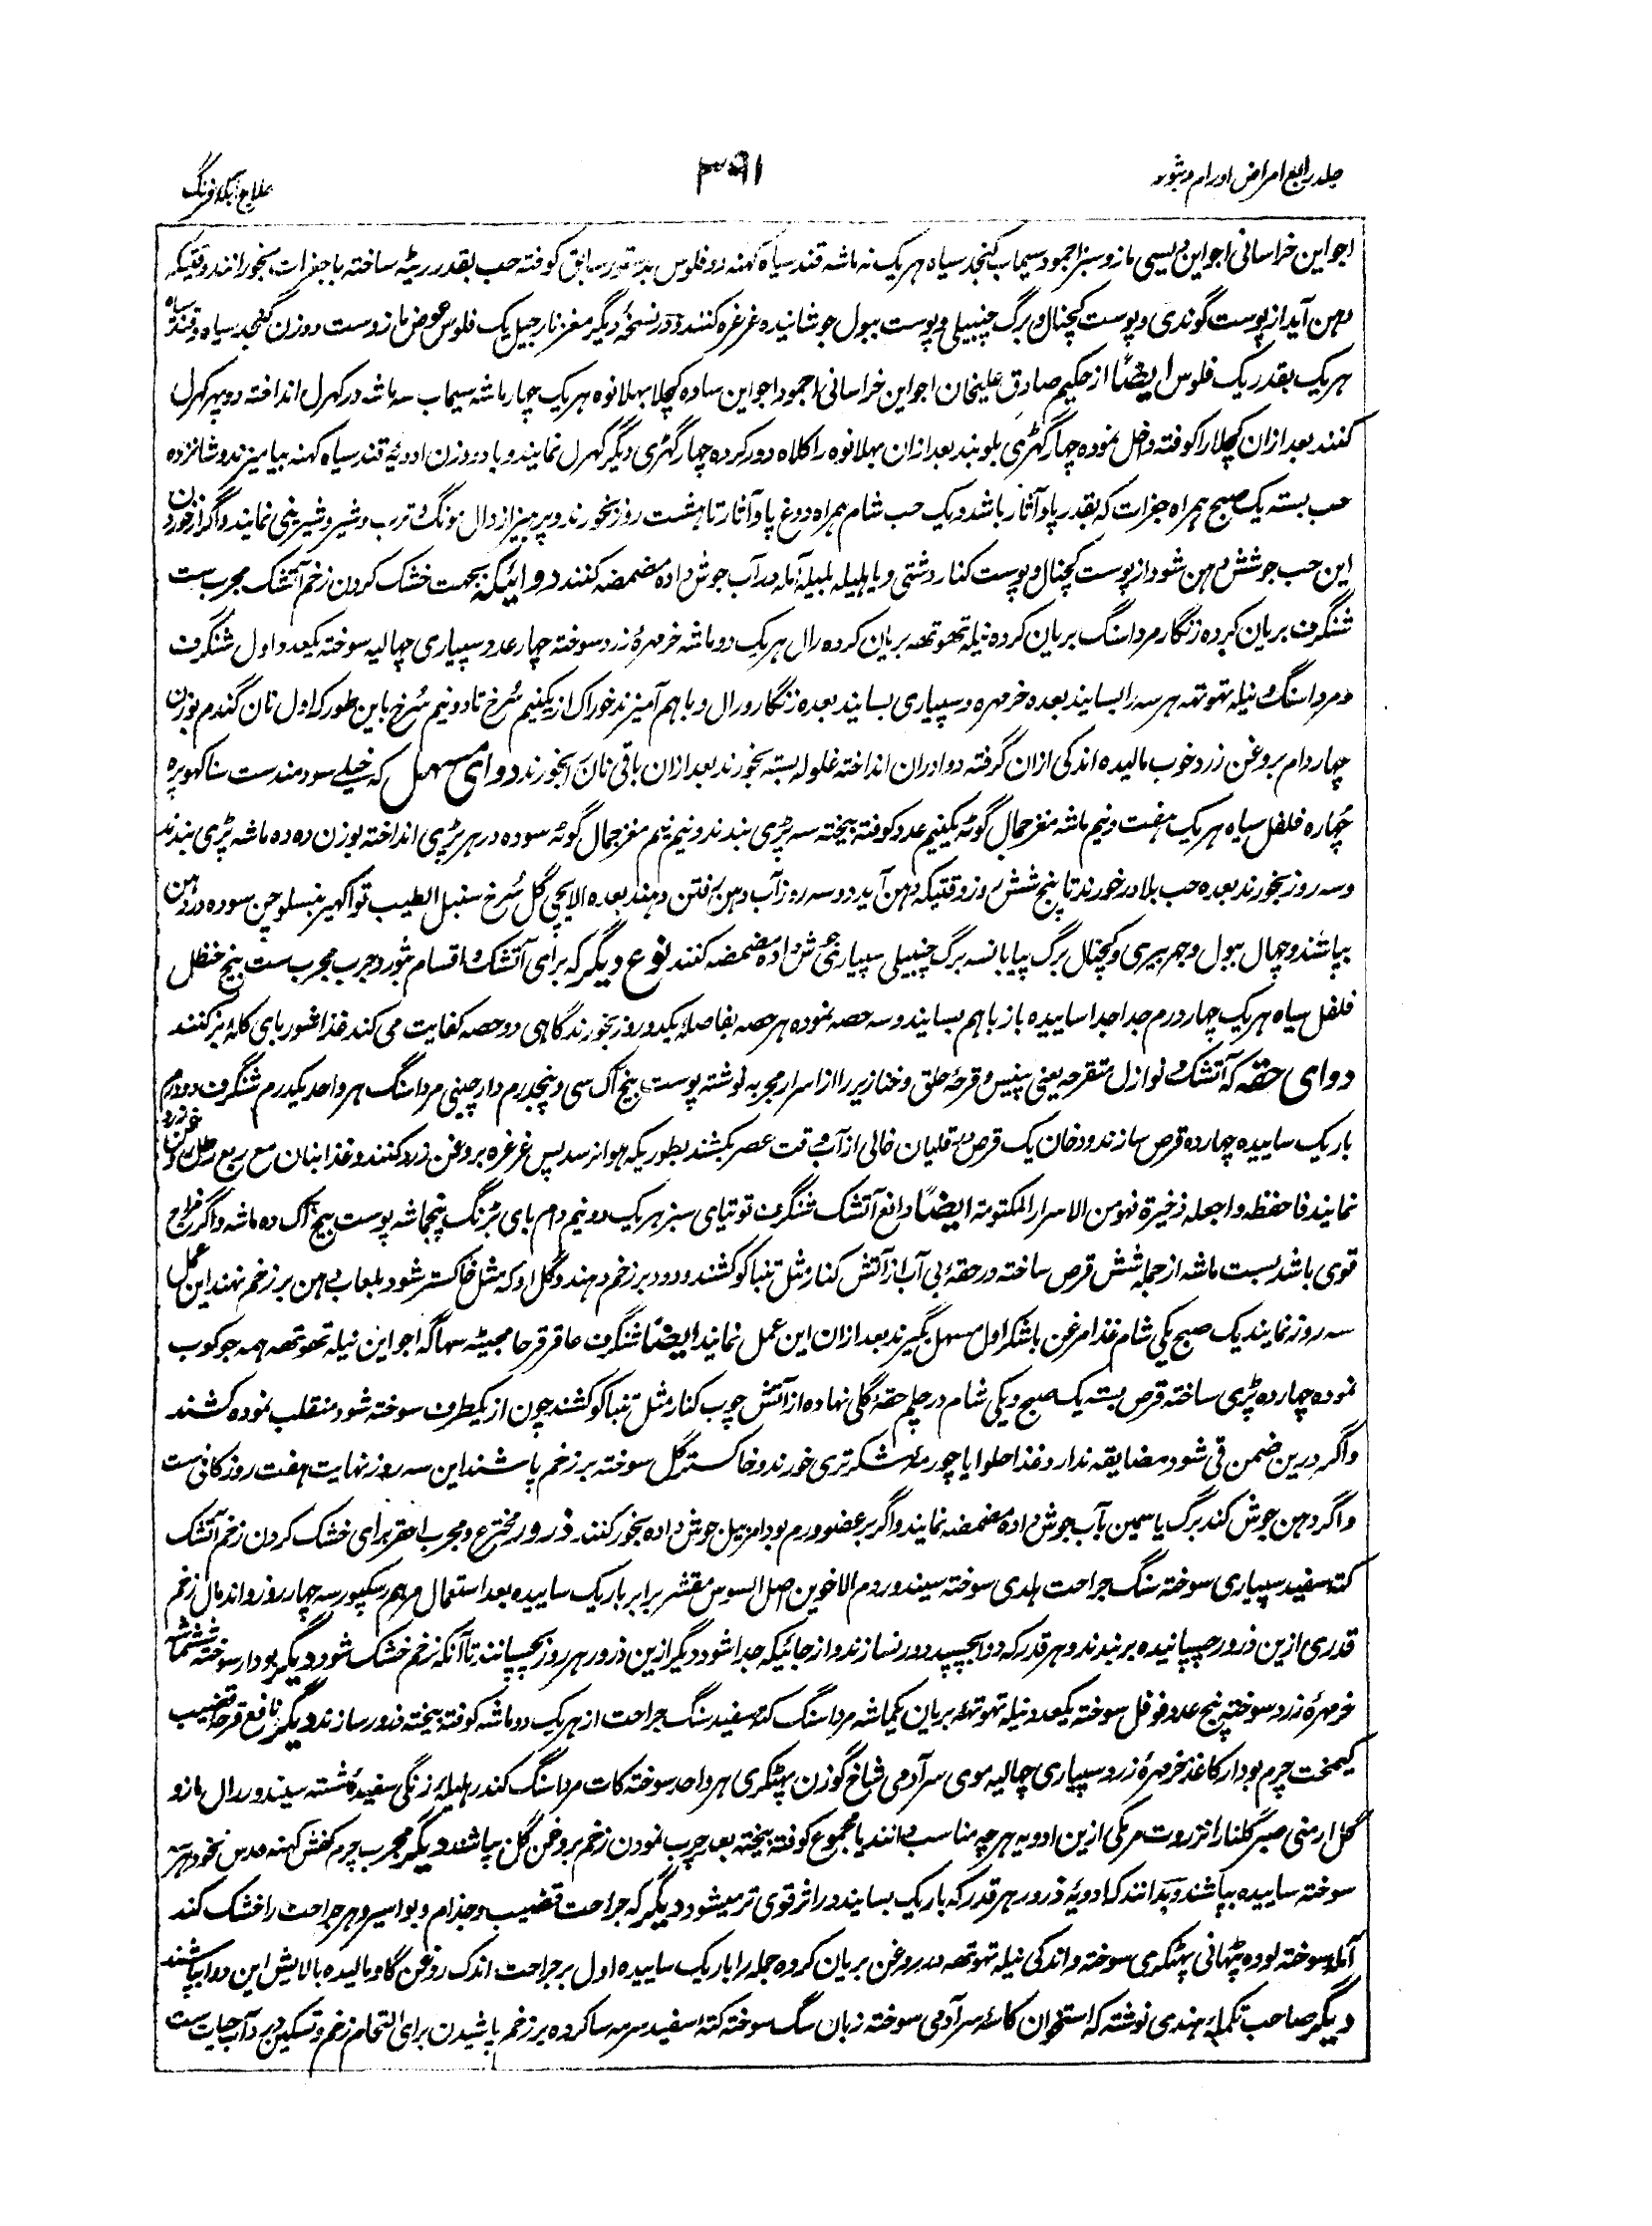 جلد رابع امراض اورام و بثور
۳۹۱
علاج آبله فرنگ
اجواین خراسانی اجواین دیسی مازو سبز اجمود سیماب کنجد سیاه هر یک نه ماشه قند سیاه کهنه دو فلوس بدستور سابق کوفته حب بقدر ریٹه ساخته با جغرات بخورانند وقتیکه
دهن آید از پوست گوندی و پوست کچنال و برگ چنبیلی و پوست ببول جوشانیده غرغره کنند و در نسخهٔ دیگر مغز نارجیل یک فلوس عوض مازوست و وزن کنجد سیاه و قند سیاه
هر یک بقدر یک فلوس ایضاً از حکیم صادق علیخان اجواین خراسانی اجمود اجواین ساده کچلا بهلانوه هر یک چهار ماشه سیماب سه ماشه در کهرل انداخته دو پهر کهرل
کنند بعد ازان کچلا را کوفته داخل نموده چهار گهڑی بلوبند بعد ازان بهلانوه را کلاه دور کرده چهار گهڑی دیگر کهرل نمایند و با دو وزن ادویه قند سیاه کهنه بیامیزند و شانزده
حب بسته یک صبح همراه جغرات که بقدر پاو آثار باشد و یک حب شام همراه دوغ پاو آثار تا هشت روز بخورند و پرهیز از دال مونگ و ترب و شیر و شیرینی نمایند و اگر از خوردن
این حب جوشش دهن شود از پوست کچنال و پوست کنار دشتی و یا هلیله بلیله آمله در آب جوش داده مضمضه کنند دوائیکه بجهت خشک کردن زخم آتشک مجرب ست
شنگرف بریان کرده زنگار مرداسنگ بریان کرده نیله تهوتهه بریان کرده رال هر یک دو ماشه خرمهرهٔ زرد سوخته چهار عدد سپیاری چهالیه سوخته یکعدد اول شنگرف
و مرداسنگ و نیله تهوتهه هر سه را بسایند بعده خرمهره و سپیاری بسایند بعده زنگار و رال و باهم آمیزند خوراک از یکنیم سُرخ تا دو نیم سُرخ باین طور که اول نان گندم بوزن
چهار دام بروغن زرد خوب مالیده اندکی ازان گرفته دوا دران انداخته غلوله بسته بخورند بعد ازان باقی نان را بخورند دوای مسهل که خیلے سودمند ست سنا کهوپره
چُهاره فلفل سیاه هر یک هفت و نیم ماشه مغز جمال گوٹه یکنیم عدد کوفته بیخته سه پڑی بندند و نیم نیم مغز جمال گوٹه سوده در هر پڑی انداخته بوزن ده ده ماشه پڑی بندند
و سه روز بخورند بعده حب بلادر خورند تا پنج شش روز وقتیکه دهن آید دو سه روز آب دهن رفتن دهند بعده الایچی گل سُرخ سنبل الطیب تواکهیر بنسلوچن سوده در دهن
بپاشند و چهال ببول و جهربیری و کچنال برگ پیابانسه برگ چنبیلی سپیاری جوش داده مضمضه کنند نوع دیگر که برای آتشک و اقسام بثور و جرب مجرب ست بیخ حنظل
فلفل سیاه هر یک چهار درم جدا جدا ساییده باز باهم بسایند و سه حصه نموده هر حصه بفاصلهٔ یکدو روز بخورند گاهی دو حصه کفایت می کند غذا شوربای کلهٔ بز کنند
دوای حقه که آتشک و نوازل متقرحه یعنی پینس و قرحهٔ حلق و خنازیر را از اسرار مجربه نوشته پوست بیخ آک سی و پنجدرم دارچینی مرداسنگ هر واحد یکدرم شنگرف دو درم
باریک ساییده چهارده قرص سازند و دخان یک قرص در قلیان خالی از آب وقت عصر بکشند بطوریکه هوا نرسد پس غرغره بروغن زرد کنند و غذا بنان مع ربع رطل روغن زرد
نمایند فاحفظه و اجعله ذخیرة فهو من الاسرار المکتومة ایضاً دافع آتشک شنگرف توتیای سبز هر یک دو نیم دام بای بڑنگ پنجماشه پوست بیخ آک ده ماشه و اگر مزاج
قوی باشد بست ماشه از جمله شش قرص ساخته در حقهٔ بی آب از آتش کنار مثل تنباکو کشند و دود بر زخم دهند و گل او که مثل خاکستر شود بلعاب دهن بر زخم نهند این عمل
سه روز نمایند یک صبح یکی شام غذا مرغن با شکر اول مسهل بگیرند بعد ازان این عمل نمایند ایضاً شنگرف عاقرقرحا مجیٹه سهاگه اجواین نیله تهوتهه همه جوکوب
نموده چهارده پڑی ساخته قرص بسته یک صبح و یکی شام در چلم حقهٔ گلی نهاده از آتش چوب کنار مثل تنباکو کشند چون از یکطرف سوخته شود منقلب نموده کشند
و اگر درین ضمن قی شود مضایقه ندارد و غذا حلوا یا چورمه شکر تری خورند و خاکستر گل سوخته بر زخم پاشند این سه روز نهایت هفت روز کافی ست
و اگر دهن جوش کند برگ یاسمین بآب جوش داده مضمضه نمایند و اگر بر عضو ورم بود امربیل جوش داده بخور کنند ذرور مخترع و مجرب احقر برای خشک کردن زخم آتشک
کتهٔ سفید سپیاری سوخته سنگ جراحت هلدی سوخته سیندور دم الاخوین اصل السوس مقشر برابر باریک ساییده بعد استعمال مرهم رسکپور سه چهار روز و اندمال زخم
قدری ازین ذرور چسپانیده بربندند و هر قدر که دوا بچسپد دور نسازند و از جائیکه جدا شود دیگر ازین ذرور هر روز بچسپانند تا آنکه زخم خشک شود دیگر بودار سوخته ششماشه
خرمهرهٔ زرد سوخته پنج عدد فوفل سوخته یکعدد نیله تهوتهه بریان یکماشه مرداسنگ کتهٔ سفید سنگ جراحت از هر یک دو ماشه کوفته بیخته ذرور سازند دیگر نافع قرحهٔ قضیب
کیمخت چرم بودار کاغذ خرمهرهٔ زرد سپیاری چهالیه موی سر آدمی شاخ گوزن پهٹکری هر واحد سوخته کات مرداسنگ کندر هلیلهٔ زنگی سفیده شسته سیندور رال مازو
گل ارمنی صبر گلنار انزروت مر مکی ازین ادویه هر چه مناسب دانند یا مجموع کوفته بیخته بعد چرب نمودن زخم بروغن گل بپاشند دیگر مجرب چرم کفش کهنه عدس نخود
سوخته ساییده بپاشند و بدانند که ادویهٔ ذرور هر قدر که باریک بسایند در اثر قوی تر میشود دیگر که جراحت قضیب و جذام و بواسیر و هر جراحت را خشک کند
آمله سوخته لوده پٹهانی پهٹکری سوخته و اندکی نیله تهوتهه در روغن بریان کرده جمله را باریک ساییده اول بر جراحت اندک روغن گاو مالیده بالایش این دوا بپاشند
دیگر صاحب تکملهٔ هندی نوشته که استخوان کاسهٔ سر آدمی سوخته زبان سگ سوخته کتهٔ سفید سرمه سا کرده بر زخم پاشیدن برای التحام زخم و تسکین درد آب حیات ست